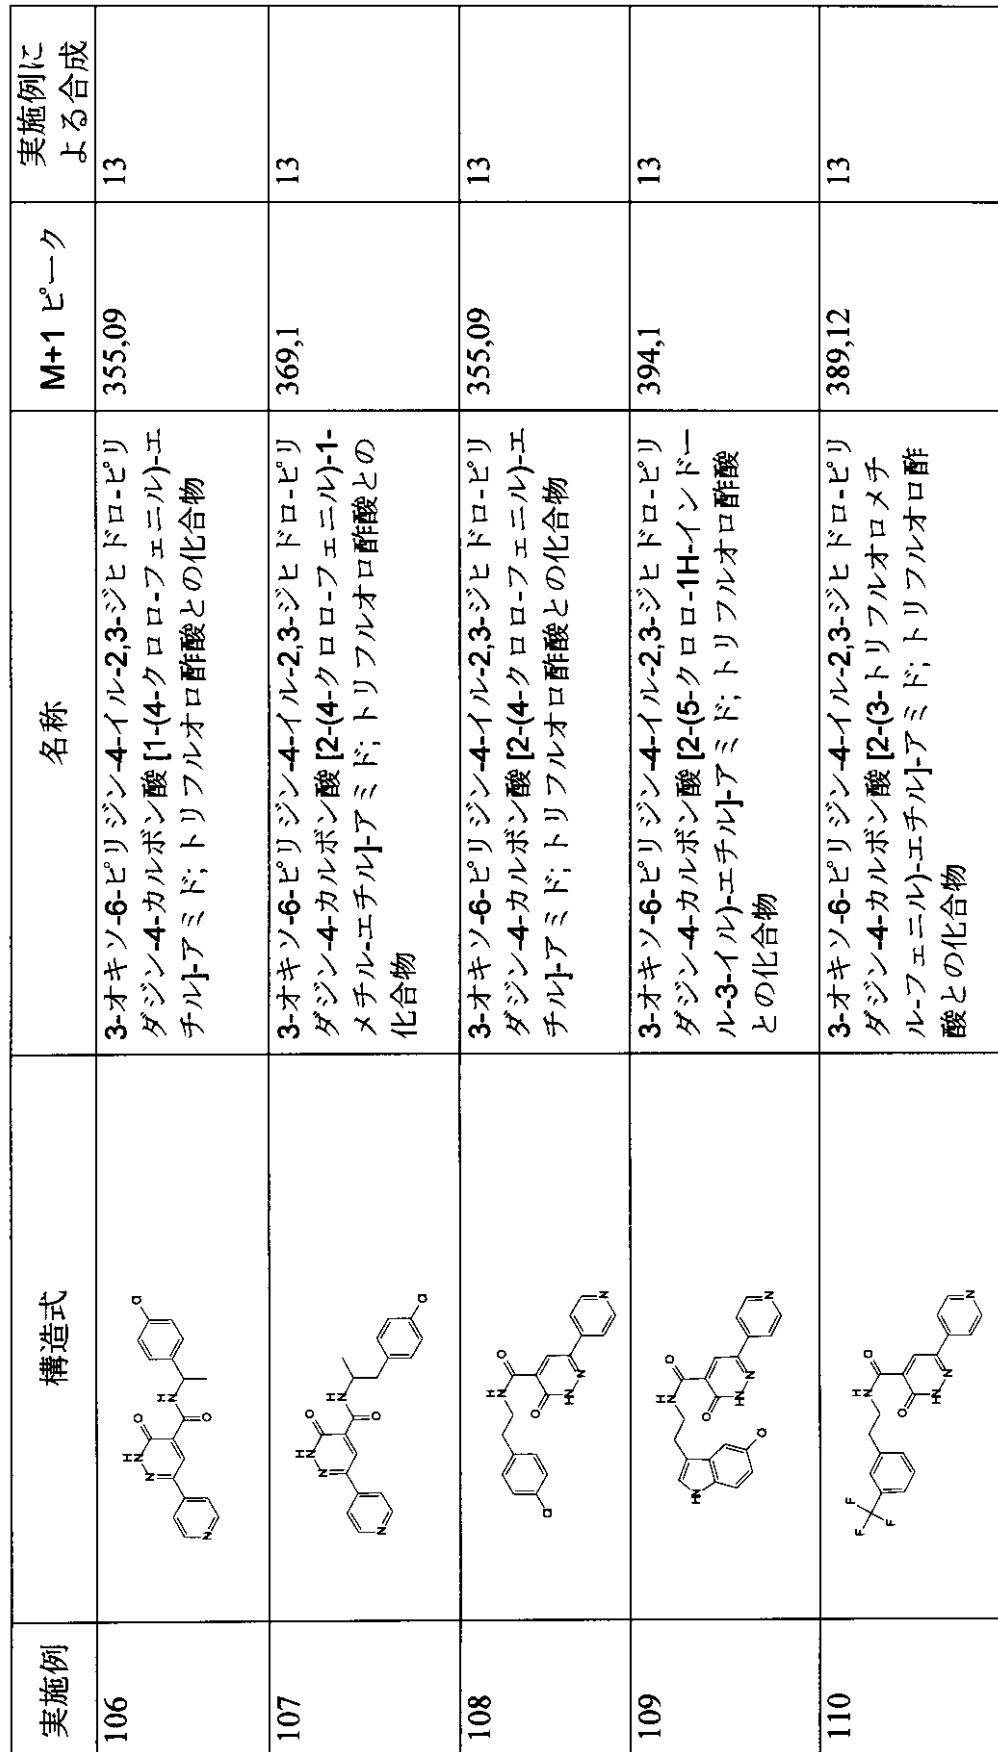 実施例
構造式
名称
M+1 ピーク
実施例に
よる合成
106
3-オキソ-6-ピリジン-4-イル-2,3-ジヒドロ-ピリ
ダジン-4-カルボン酸 [1-(4-クロロ-フェニル)-エ
チル]-アミド; トリフルオロ酢酸との化合物
355,09
13
107
3-オキソ-6-ピリジン-4-イル-2,3-ジヒドロ-ピリ
ダジン-4-カルボン酸 [2-(4-クロロ-フェニル)-1-
メチル-エチル]-アミド; トリフルオロ酢酸との
化合物
369,1
13
108
3-オキソ-6-ピリジン-4-イル-2,3-ジヒドロ-ピリ
ダジン-4-カルボン酸 [2-(4-クロロ-フェニル)-エ
チル]-アミド; トリフルオロ酢酸との化合物
355,09
13
109
3-オキソ-6-ピリジン-4-イル-2,3-ジヒドロ-ピリ
ダジン-4-カルボン酸 [2-(5-クロロ-1H-インドー
ル-3-イル)-エチル]-アミド; トリフルオロ酢酸
との化合物
394,1
13
110
3-オキソ-6-ピリジン-4-イル-2,3-ジヒドロ-ピリ
ダジン-4-カルボン酸 [2-(3-トリフルオロメチ
ル-フェニル)-エチル]-アミド; トリフルオロ酢
酸との化合物
389,12
13